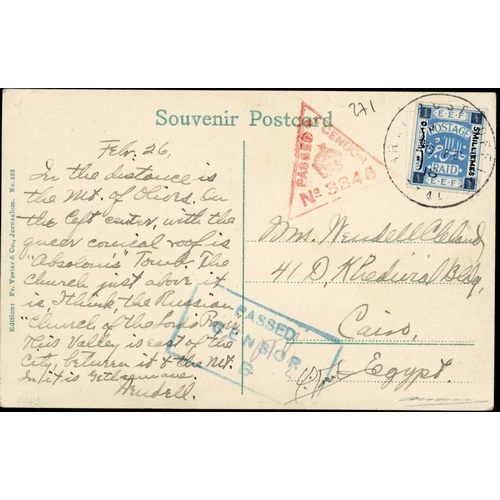 Souvenir Postcard
271
Febr. 26,
In the distance is
the Mt. of Olives. On
the left center, with the
queer conical roof is
"Absolom's" Tomb. The
church just above it
is, I think, the Russian
"Church of the Lord's
This Valley is east of the
City, between it & the Mt.
In it is Gethsemane
Wendell.
Edition: Fr. Vester & Co., Jerusalem. No. 123
PASSED BY CENSOR
No 3346
E.E.F.
POSTAGE
PAID
E.E.F.
5 MILLIEMES
PASSED
CENSOR
Mrs. Wendell Cleland
41 D, Khedivial Bldg,
Cairo,
Egypt.